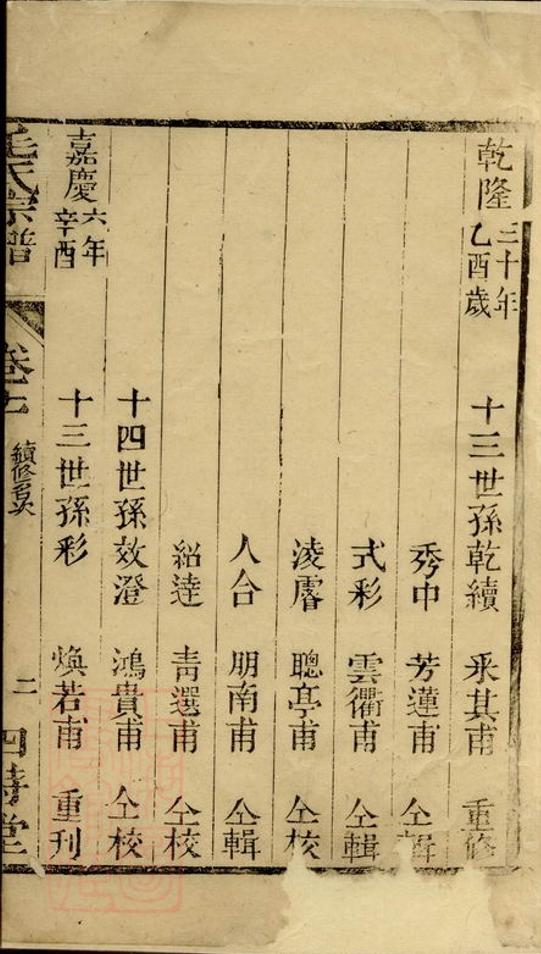 乾隆三十年乙酉歲 十三世孫乾續 釆其甫 重修
秀中 芳蓮甫 仝輯
式彩 雲衢甫 仝輯
淩霨 聰亭甫 仝校
人台 朋南甫 仝輯
紹逹 青選甫 仝校
十四世孫效澄 鴻貴甫 仝校
嘉慶六年辛酉 十三世孫彩 煥若甫 重刊
氏宗譜 卷七 續修名次 二 四詩堂